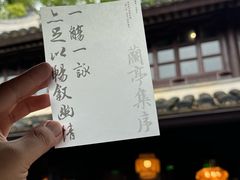 蘭亭集序
一觴一詠
亦足以暢叙幽情